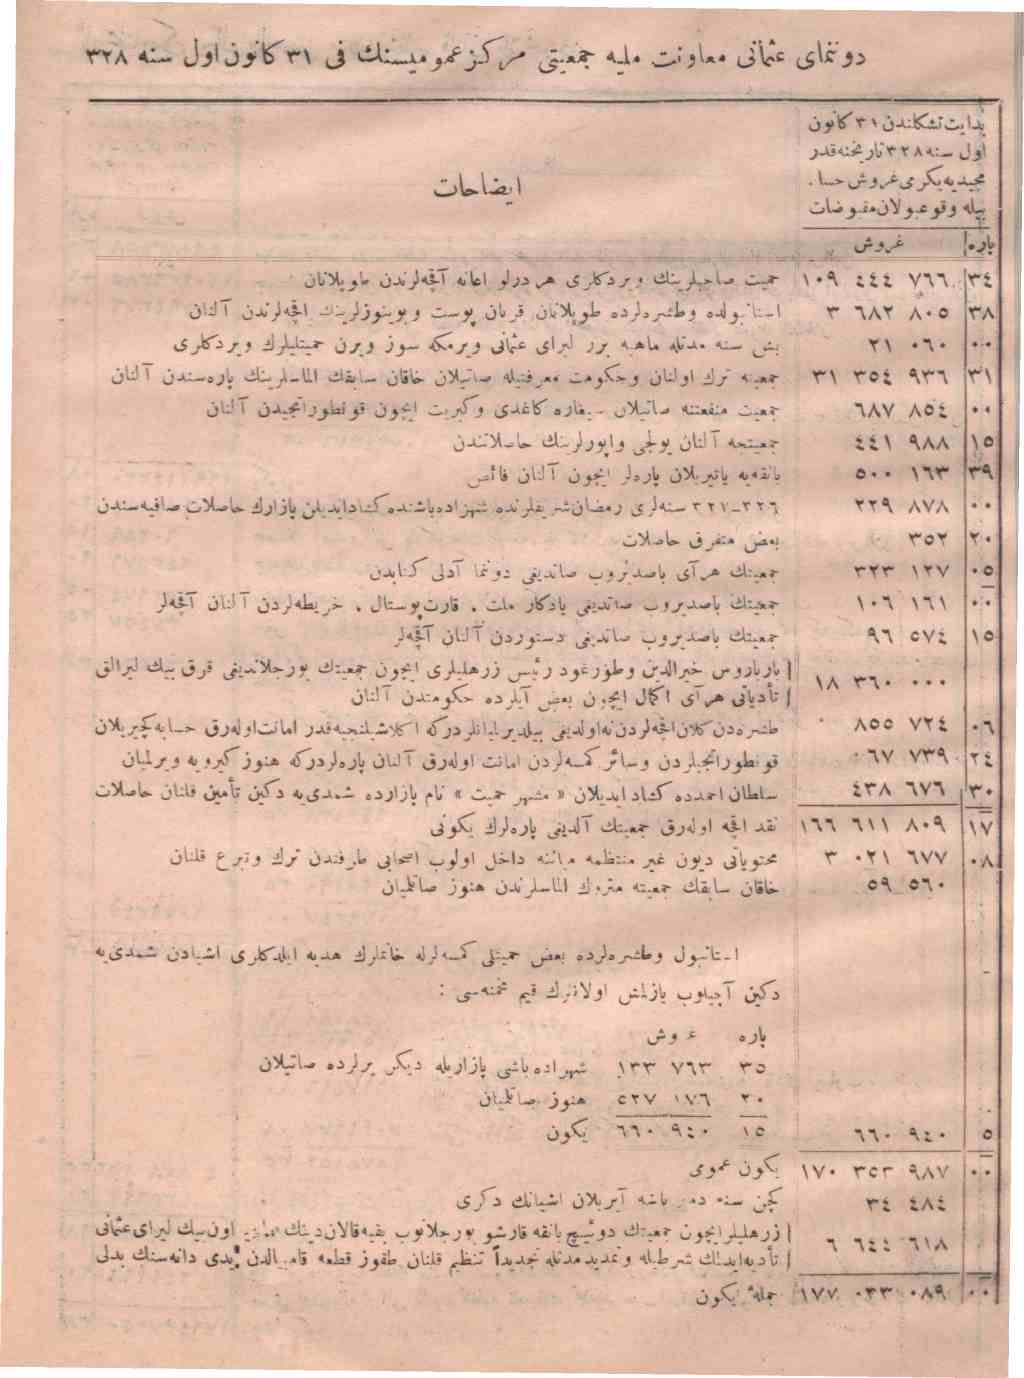 دوننمای عثمانی معاونت ملیه جمعیتی مرکز عمومیسنك فی ٣١ كانون اول سنه ٣٢٨
بدایت تشكلندن ٣١ كانون
اول سنه ٣٢٨ تاریخنه قدر
مجیدیه یكرمی غروش حسا.
بیله وقوعبولان مقبوضات
ایضاحات
پاره غروش
٣٤ ١٠٩ ٤٤٤ ٧٦٦ حمیت صاحبلرینك ویردكلری هر درلو اعانه آقچه‌لرندن طوپلانان
٣٨ ٣ ٦٨٢ ٨٠٥ استانبولده وطشره‌لرده طوپلانان قربان پوست وبوینوزلرینك اقچه‌لرندن آلنان
٠٠ ٢١ ٠٦٠ بش سنه مدتله ماهیه برر لیرای عثمانی ویرمكه سوز ویرن حمیتلیلرك ویردكلری
٣١ ٣١ ٣٥٤ ٩٣٦ جمعیته ترك اولنان وحكومت معرفتیله صاتیلان خاقان سابقك الماسلرینك پاره‌سندن آلنان
٠٠ ٦٨٧ ٨٥٤ جمعیت منفعتنه صاتیلان سیغاره كاغدی وكبریت ایچون قونطوراتجیدن آلنان
١٥ ٤٤١ ٩٨٨ جمعیتجه آلنان یولجی واپورلرینك حاصلاتندن
٣٩ ٥٠٠ ١٦٣ بانقه‌یه یاتیریلان پاره‌لر ایچون آلنان فائض
٠٠ ٢٢٩ ٨٧٨ ٣٢٦-٣٢٧ سنه‌لری رمضان شریفلرنده شهزاده‌باشنده كشاد ایدیلن پازارك حاصلات صافیه‌سندن
٢٠ ٣٥٢ بعض متفرق حاصلات
٠٥ ٣٢٣ ١٢٧ جمعیتك هر آی باصدیروب صاتدیغی دوننما آدلی كتابدن
٠٠ ١٠٦ ١٦١ جمعیتك باصدیروب صاتدیغی یادكار ملت ، قارت پوستال ، خریطه‌لردن آلنان آقچه‌لر
١٥ ٩٦ ٥٧٤ جمعیتك باصدیروب صاتدیغی دستوردن آلنان آقچه‌لر
١٨ ٣٦٠ ٠٠٠ بارباروس خیرالدین وطورغود رئیس زرهلیلری ایچون جمعیتك بورجلاندیغی قرق بیك لیرالق
تأدیاتی هر آی اكمال ایچون بعض آیلرده حكومتدن آلنان
٠٦ ٨٥٥ ٧٢٤ طشره‌دن كلان اقچه‌لردن نه اولدیغی بیلدیرلمیانلردركه اكلاشیلنجیه قدر امانت اوله‌رق حسابه كچیریلان
٢٤ ٠٦٧ ٧٣٩ قونطوراتجیلردن وسائر كمسه‌لردن امانت اوله‌رق آلنان پاره‌لردركه هنوز كیرویه ویرلمیان
٣٠ ٤٣٨ ٦٧٦ سلطان احمدده كشاد ایدیلان « مشهر حمیت » نام پازارده شمدی‌یه دكین تأمین قلنان حاصلات
١٧ ١٦٦ ٦١١ ٨٠٩ نقد اقچه اوله‌رق جمعیتك آلدیغی پاره‌لرك یكونی
٠٨ ٣ ٠٢١ ٦٧٧ محتویاتی دیون غیر منتظمه میاننه داخل اولوب اصحابی طرفندن ترك وتبرع قلنان
٥٩ ٥٦٠ خاقان سابقك جمعیته متروك الماسلرندن هنوز صاتلمیان
استانبول وطشره‌لرده بعض حمیتلی كمسه‌لرله خانملرك هدیه ایلدكلری اشیادن شمدی‌یه
دكین آچیلوب یازلمش اولانلرك قیم مخمنه‌سی :
پاره غروش
٣٥ ١٣٣ ٧٦٣ شهزاده‌باشی پازاریله دیكر یرلرده صاتیلان
٢٠ ٥٢٧ ١٧٦ هنوز صاتلمیان
١٥ ٦٦٠ ٩٤٠ یكون
٥ ٦٦٠ ٩٤٠
٠٠ ١٧٠ ٣٥٣ ٩٨٧ یكون عمومی
٣٤ ٤٨٤ كچن سنه دمیر باشه آیریلان اشیانك دكری
٦ ٦٤٤ ٦١٨ زرهلیلر ایچون جمعیتك دوئیچ بانقه قارشو بورجلانوب بقیه قالان دینك اون بیك لیرای عثمانی
تأدیه ایدلك شرطیله وتمدید مدتله تجدیداً تنظیم قلنان طقوز قطعه قامبیالدن یدی دانه‌سنك بدلی
٠٠ ١٧٧ ٠٣٣ ٠٨٩ جملۀ یكون